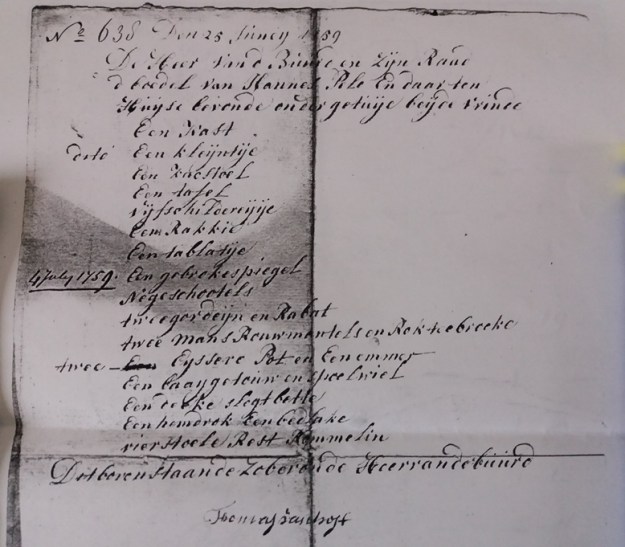 No 638 Den 25 Juney 1759
De Heer van d Buurte en Zijn Raad
d boedel van Hannes Pele En daar ten
Huijse bevonde onder getuije beijde vrinde
Een Kast
dito Een kleijntije
Een Kacstoel
Een tafel
vijf schildereijije
Een Rakkie
Een tablatije
4 July 1759. Een gebroke spiegel
Nege schootels
twee gordijn en Rabat
twee Mans Rouwmantels en Rok + broeke
twee Eyssere Pot en Een emmer
Een baaygetouw en spoelwiel
Een slegt bette
Een hemdrok Een bedlake
vier stoele Rest Rommelin
Dit bovenstaande Zo bevonde Heer van de buurt
Thomas